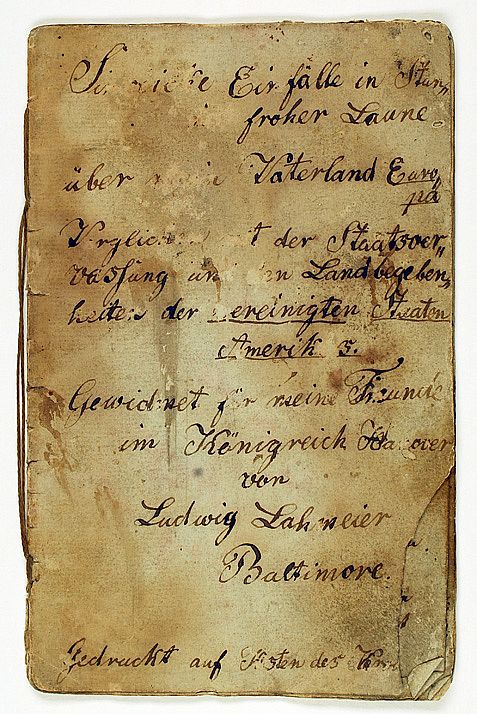 Einfälle in Stun„
froher Laune
über mein Vaterland Euro„
pä
Verglichen mit der Staatsver„
vassung und den Landbegeben„
heiten der vereinigten Staaten
Amerik's.
Gewidmet für meine Freunde
im Königreich Hanover
von
Ludwig Lahmeier
Baltimore.
Gedruckt auf Kosten des